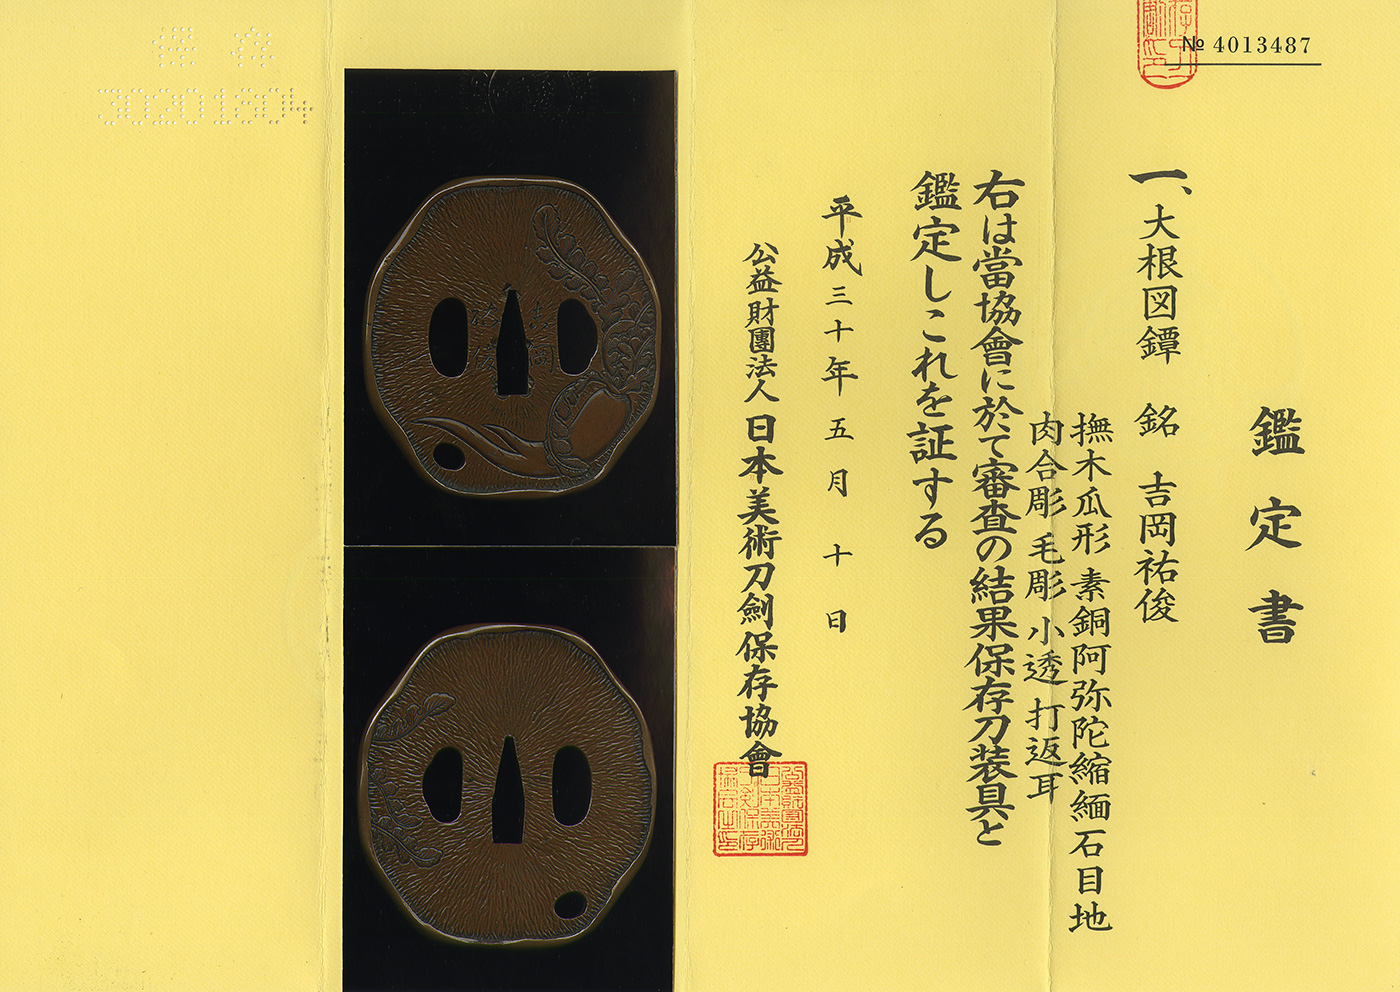 № 4013487
鑑定書
一、大根図鐔 銘 吉岡祐俊
撫木瓜形 素銅阿弥陀縮緬石目地
肉合彫 毛彫 小透 打返耳
右は當協會に於て審査の結果保存刀装具と
鑑定しこれを証する
平成三十年五月十日
公益財團法人 日本美術刀劍保存協會
保存
30201804